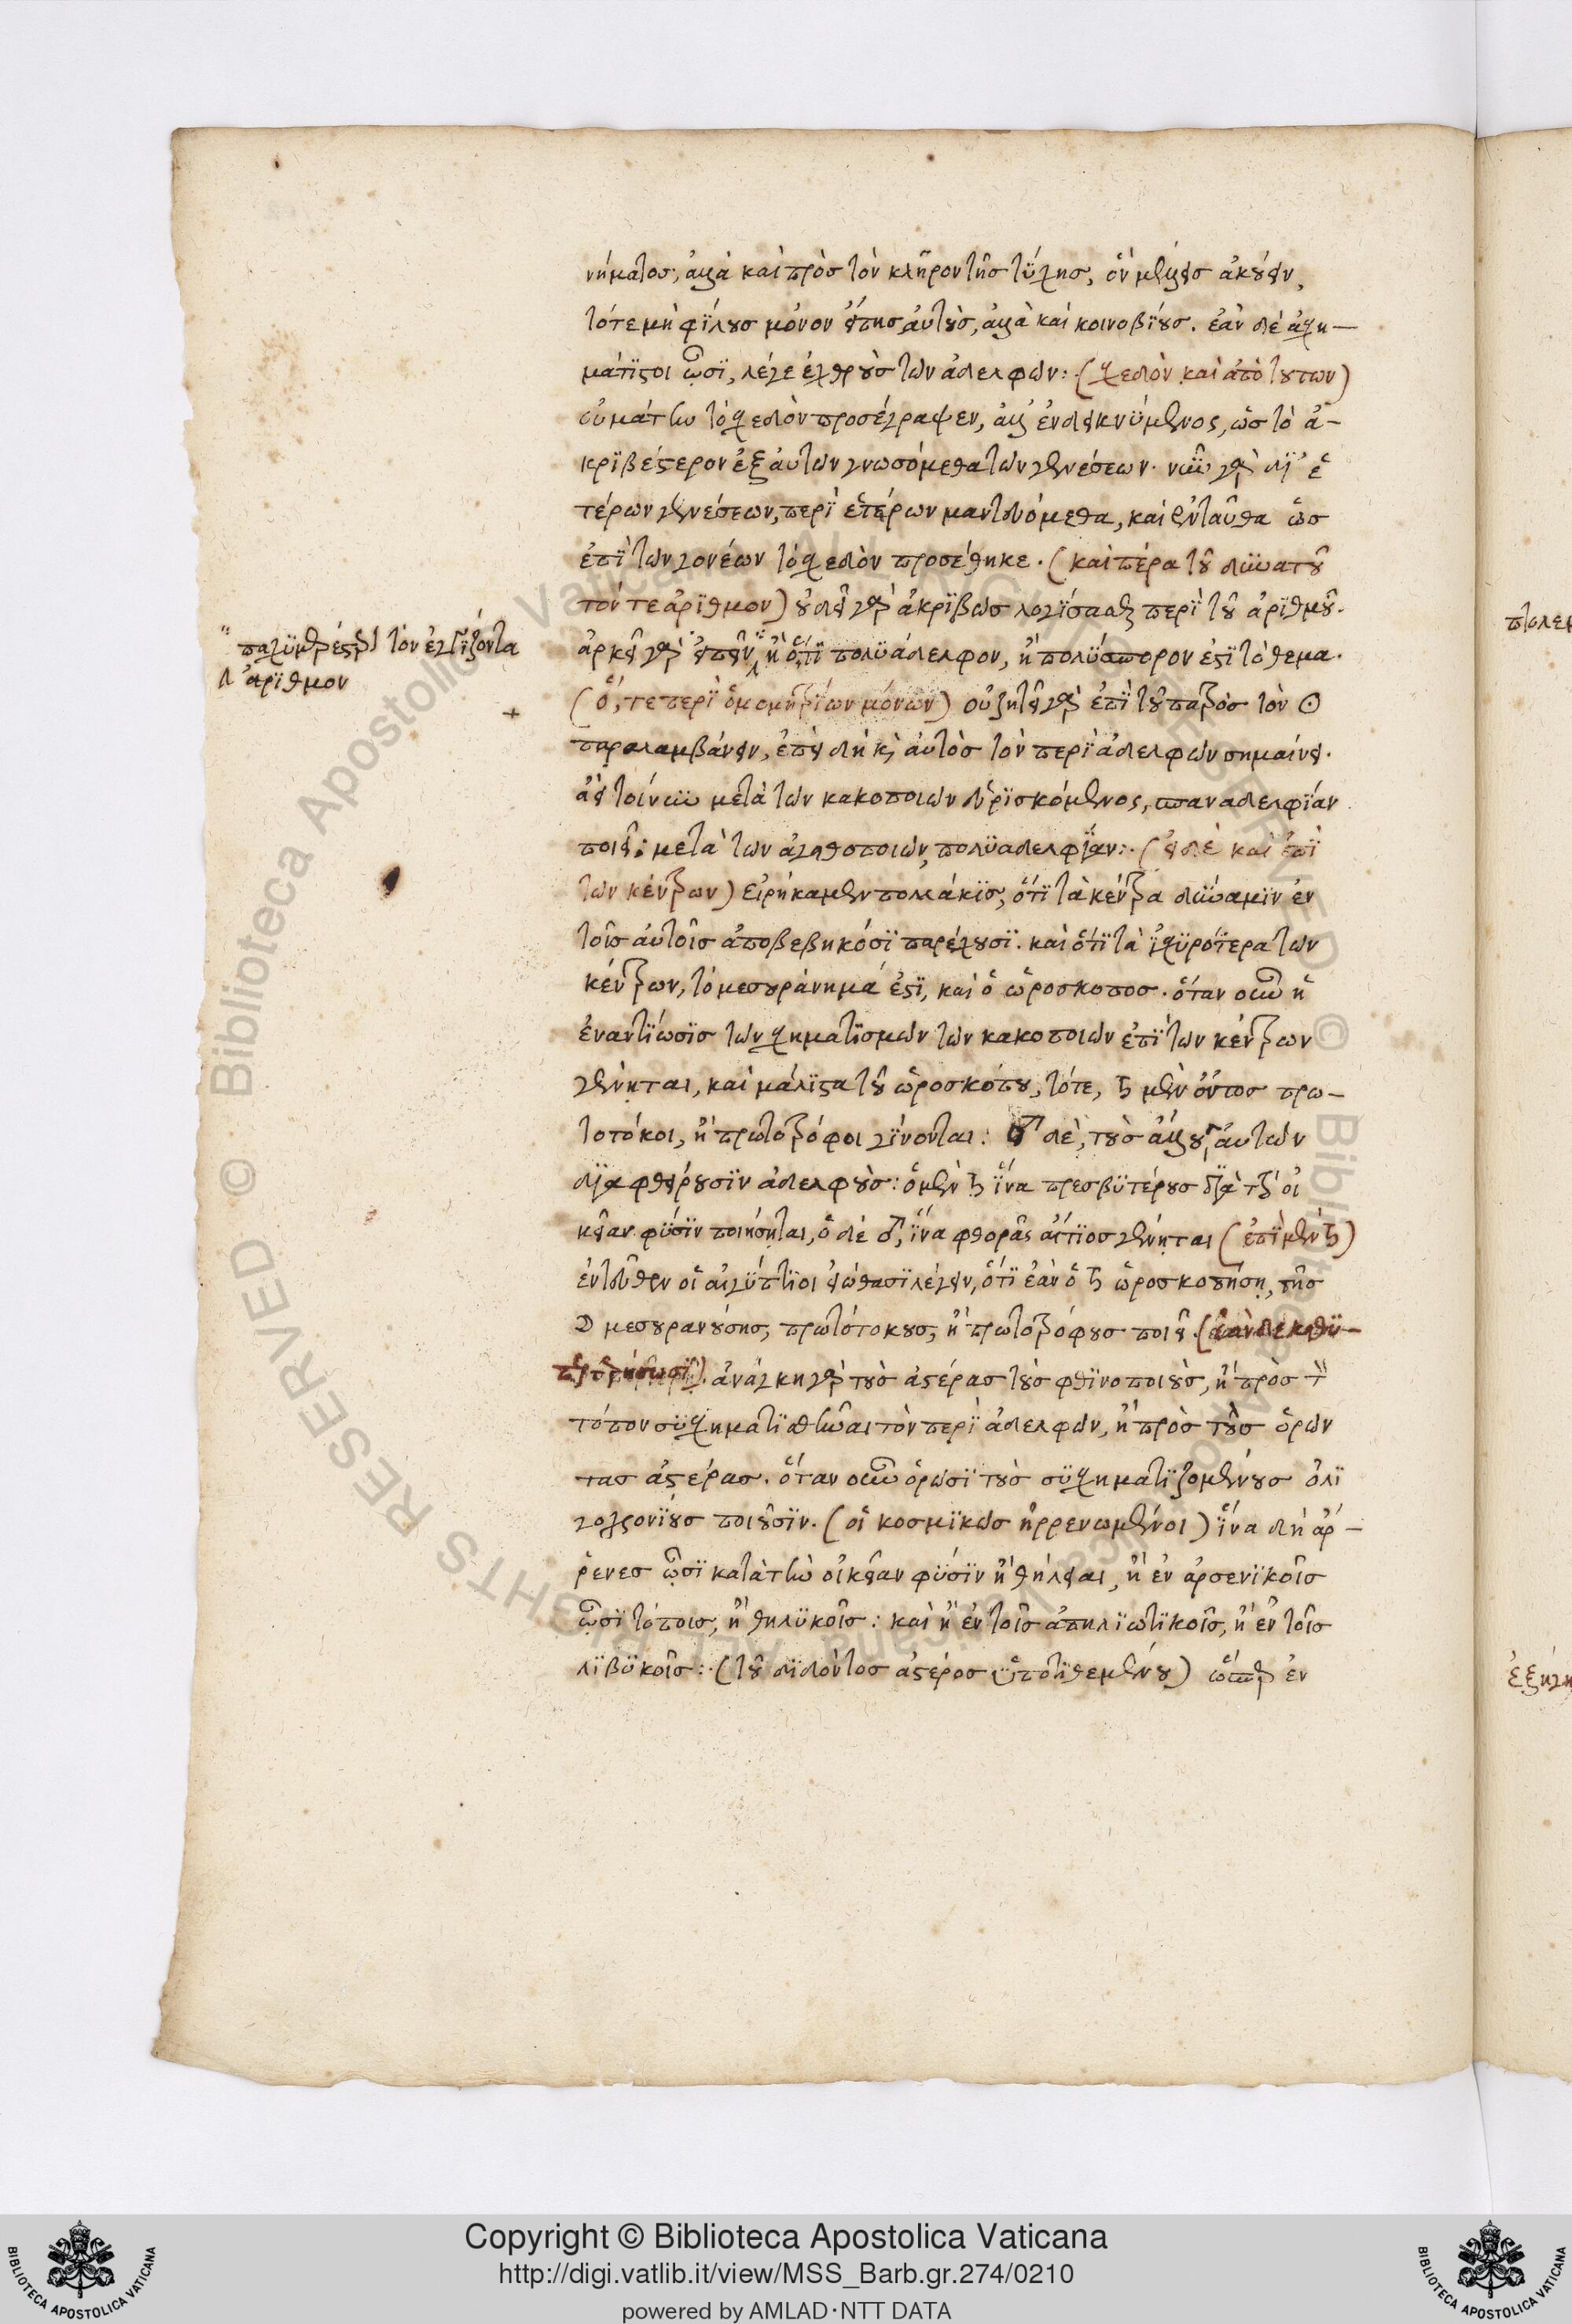 νήματος, ἀλλὰ καὶ πρὸς τὸν κλῆρον τῆς τύχης, ὃν μέλλεις ἀκούειν,
τότε μὴ φίλους μόνον εἴπῃς αὐτοὺς, ἀλλὰ καὶ κοινοβίους. ἐὰν δὲ ἀσχη-
μάτιστοι ὦσι, λέγε ἐχθροὺς τῶν ἀδελφῶν: (σχεδὸν καὶ ἀπὸ τούτων)
οὐ μάτην τὸ σχεδὸν προσέγραψεν, ἀλλ' ἐνδεικνύμενος, ὡς τὸ ἀ-
κριβέστερον ἐξ αὐτῶν γνωσόμεθα τῶν γενέσεων. νῦν γὰρ δι' ἑ
τέρων γενέσεων, περὶ ἑτέρων μαντευόμεθα, καὶ ἐνταῦθα ὡς
ἐπὶ τῶν γονέων τὸ σχεδὸν προσέθηκε. (καὶ πέρα τοῦ δυνατοῦ
τόν τε ἀριθμον) οὐ δεῖ γὰρ ἀκριβῶς λογίσασθαι περὶ τοῦ ἀριθμοῦ.
παχυμερέστερον τὸν ἐγγίζοντα
ἀριθμον
ἀρκεῖ γὰρ εἰπεῖν ἢ ὅτι πολυάδελφον, ἢ πολύσπορον ἐστὶ τὸ θεμα.
(ὅ, τε περὶ ὁμομητρίων μόνων) οὐ ζητεῖ γὰρ ἐπὶ τοῦ πατρὸς τὸν ☉
παραλαμβάνειν, ἐπειδὴ καὶ αὐτὸς τὸν περὶ ἀδελφῶν σημαίνει.
ἀεὶ τοίνυν μετὰ τῶν κακοποιῶν εὑρισκόμενος, σπαναδελφίαν
ποιεῖ: μετὰ των ἀγαθοποιῶν, πολυαδελφίαν: (εἰ δὲ καὶ ἐπὶ
τῶν κέντρων) εἰρήκαμεν πολλάκις, ὅτι τὰ κέντρα δύναμιν ἐν
τοῖς αὐτοῖς ἀποβεβηκόσι παρέχουσι. καὶ ὅτι τὰ ἰσχυρότερα τῶν
κέντρων, τὸ μεσουράνημά ἐστι, καὶ ὁ ὡροσκοπος. ὅταν οὖν ἡ
ἐναντίωσις τῶν σχηματισμῶν τῶν κακοποιῶν ἐπὶ τῶν κέντρων
γένηται, καὶ μάλιστα τοῦ ὡροσκόπου, τότε, ♄ μὲν ὄντος πρω-
τοτόκοι, ἢ πρωτοτρόφοι γίνονται: ♂ δὲ, τοὺς ἄλλους αὐτῶν
διαφθείρουσιν ἀδελφοὺς: ὁ μὲν ♄ ἵνα πρεσβυτέρους διὰ τὴν οἰ
κείαν φύσιν ποιήσηται, ὁ δὲ ♂, ἵνα φθορᾶς αἴτιος γένηται (ἐπὶ μὲν ♄)
ἐντεῦθεν οἱ αἰγύπτιοι εἰώθασι λέγειν, ὅτι ἐὰν ὁ ♄ ὡροσκοπήσῃ, τῆς
☽ μεσουρανούσης, πρωτότοκους, ἢ πρωτοτρόφους ποιεῖ. (ἐὰν δὲ καθυ-
περτερήσωσι) ἀνάγκη γὰρ τοὺς ἀστέρας τοὺς φθινοποιοὺς, ἢ πρὸς τὸν
τόπον συσχηματισθῆναι τὸν περὶ ἀδελφῶν, ἢ πρὸς τοὺς ὁρῶν
τας ἀστέρας. ὅταν οὖν ὁρῶσι τοὺς συσχηματιζομένους ὀλι
γοχρονίους ποιοῦσιν. (οἱ κοσμικῶς ἠρρενωμένοι) ἵνα δὴ ἄρ-
ρενες ὦσι κατὰ τὴν οἰκείαν φύσιν ἢ θήλειαι, ἢ ἐν ἀρσενικοῖς
ὦσι τόποις, ἢ θηλυκοῖς: καὶ ἢ ἐν τοῖς ἀπηλιωτικοῖς, ἢ ἐν τοῖς
λιβυκοῖς: (τοῦ διδόντος ἀστέρος ὑποτιθεμένου) ὥσπερ ἐν
Copyright © Biblioteca Apostolica Vaticana
http://digi.vatlib.it/view/MSS_Barb.gr.274/0210
powered by AMLAD·NTT DATA